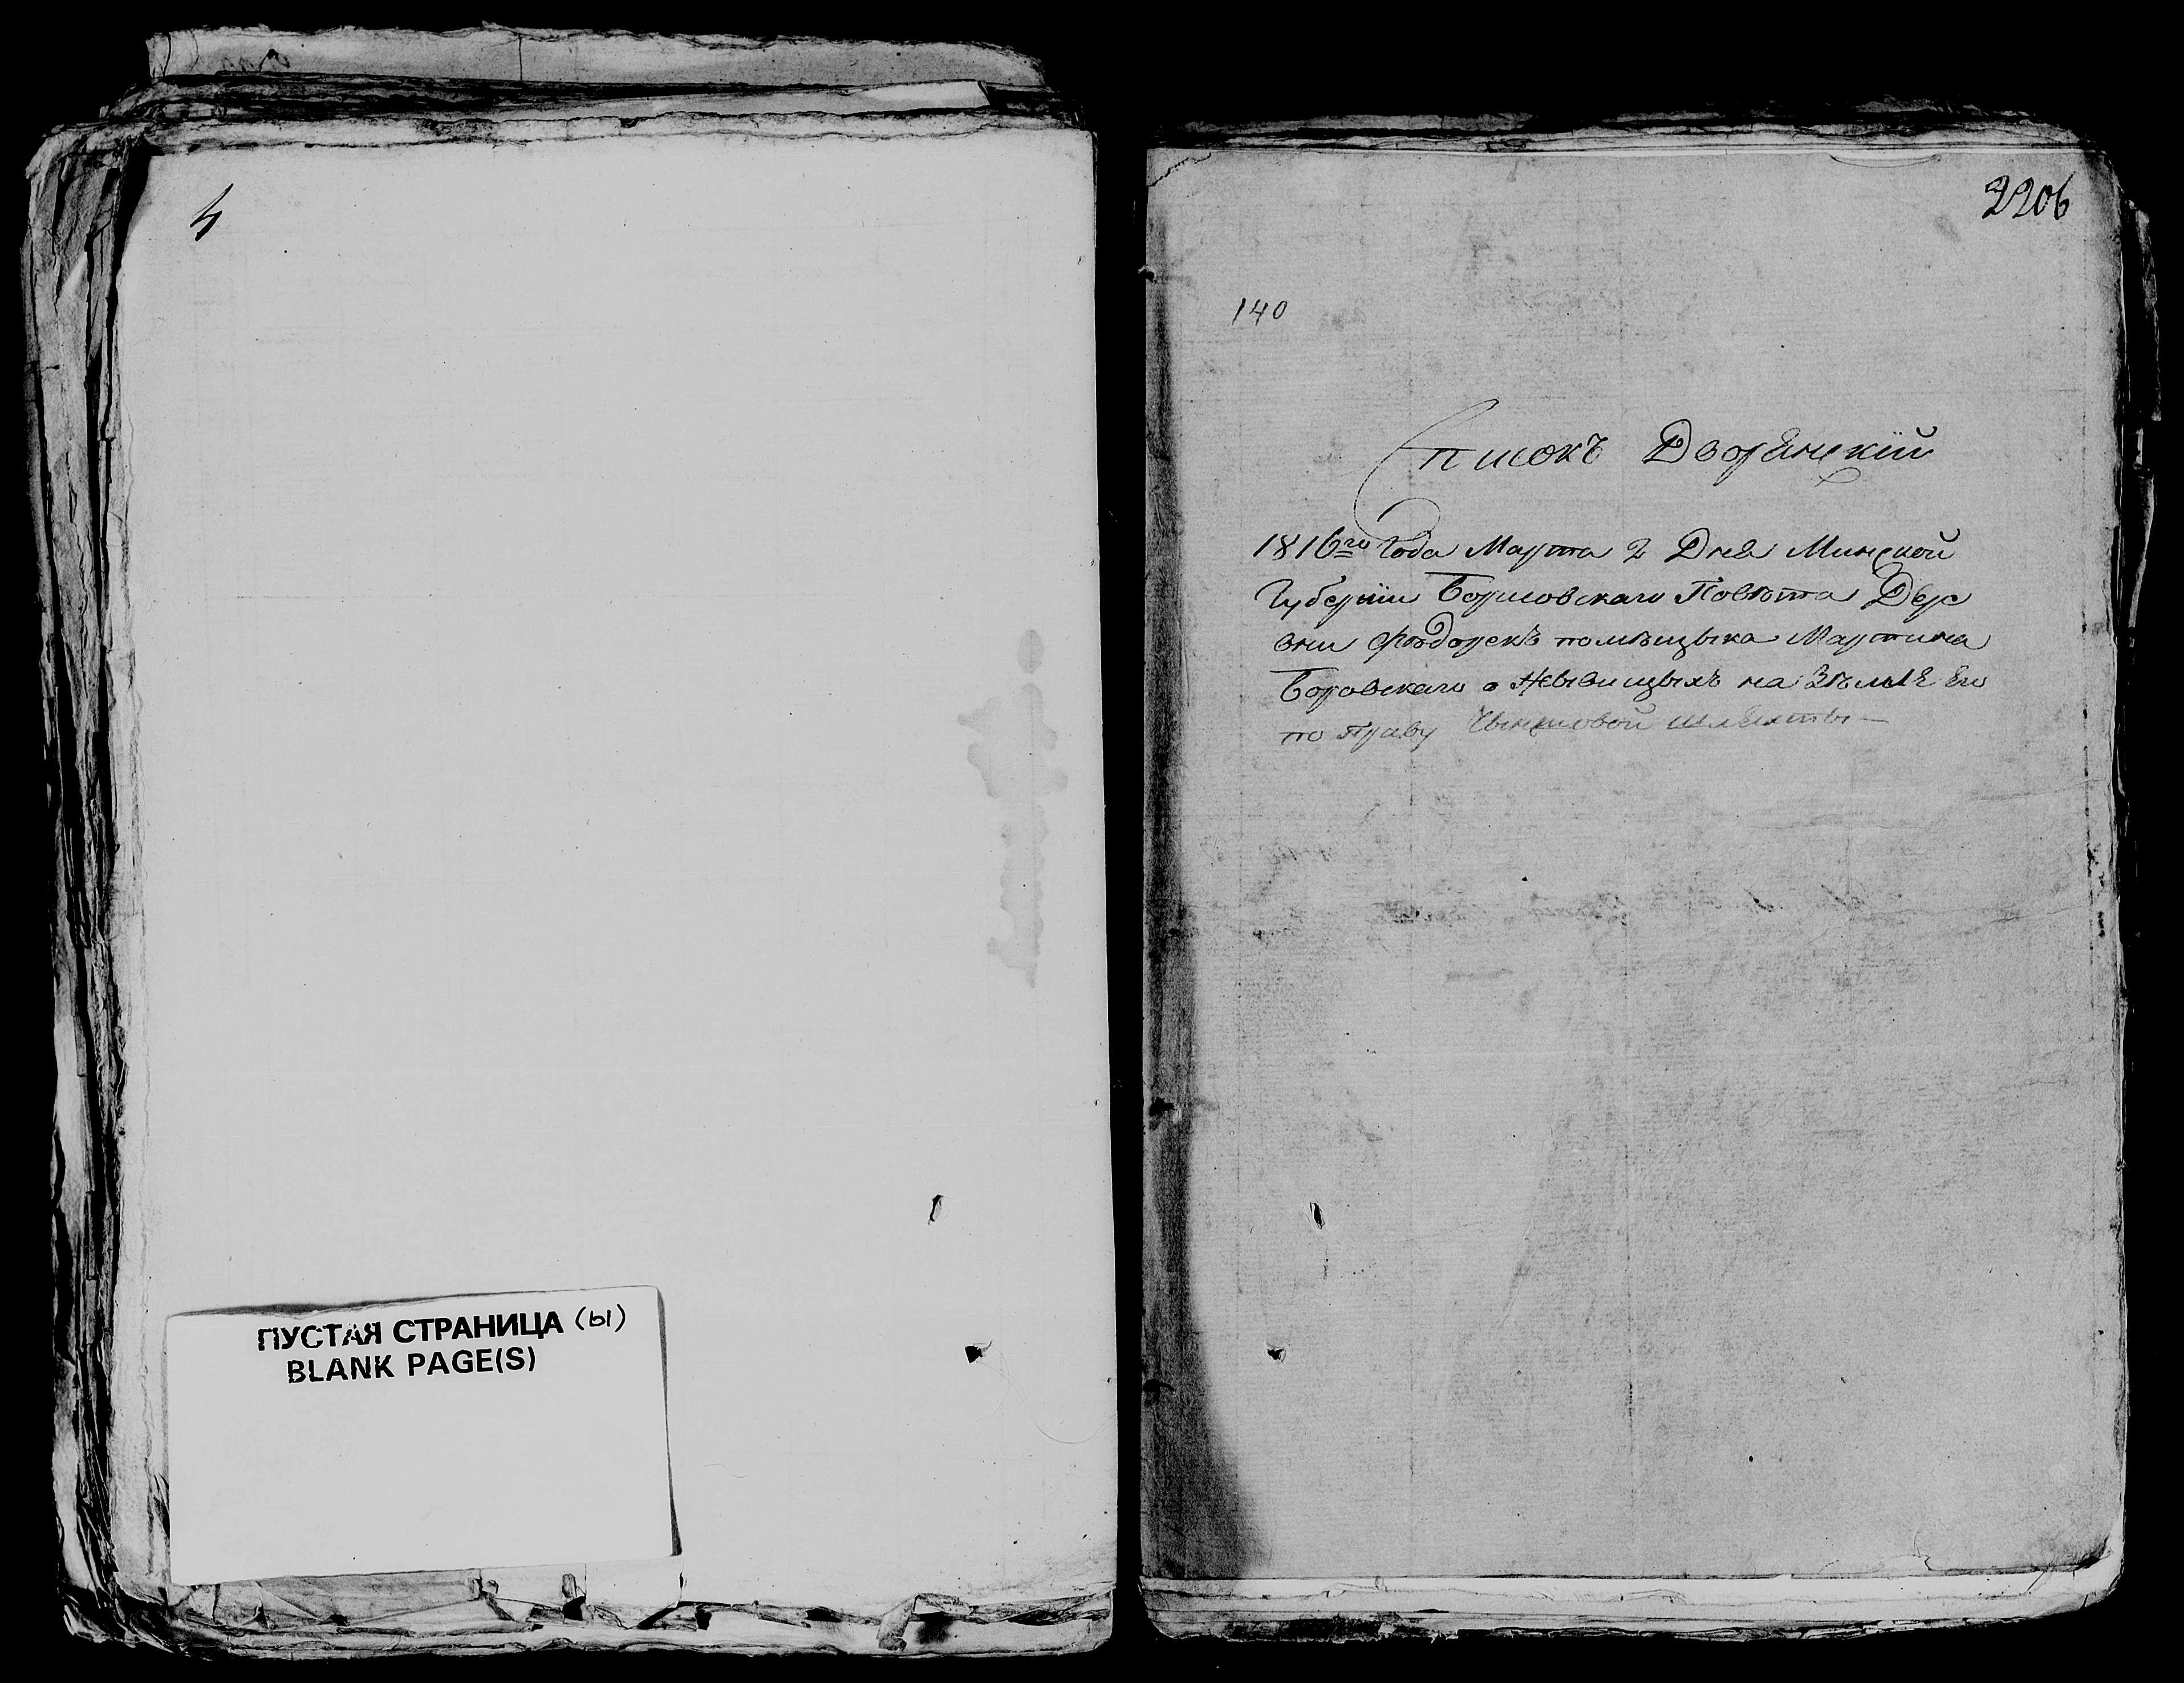 4
ПУСТАЯ СТРАНИЦА (ы)
BLANK PAGE(S)
2206
140
Списокъ Дворянскій
1816го Года Марта 2 Дня Минской
Губерніи Борисовскаго Повѣта Дере
вни помѣщыка Мартина
Боровскаго о на Зѣмлѣ Его
по Праву Чыншовой шляхты —